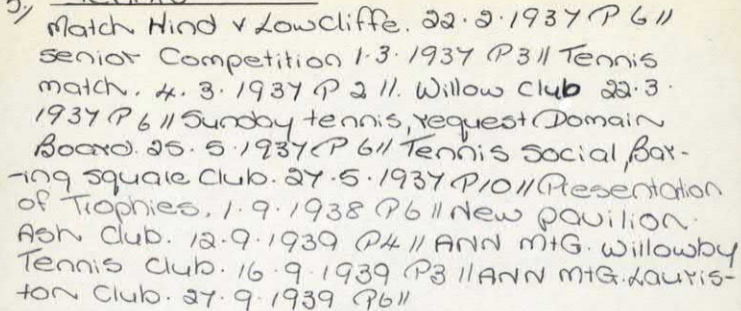 5)
Match Hind v Lowcliffe. 22.2.1937 P 6 //
senior Competition 1.3.1937 P3 // Tennis
match. 4.3.1937 P 2 //. Willow Club 22.3.
1937 P 6 // Sunday tennis, request Domain
Board. 25.5.1937 P 6 // Tennis Social, Bar-
-ing square Club. 27.5.1937 P10 // Presentation
of Trophies. 1.9.1938 P6 // New pavilion.
Ash Club. 12.9.1939 P4 // ANN MtG. Willowby
Tennis Club. 16.9.1939 P3 // ANN MtG. Lauris-
ton Club. 27.9.1939 P6 //